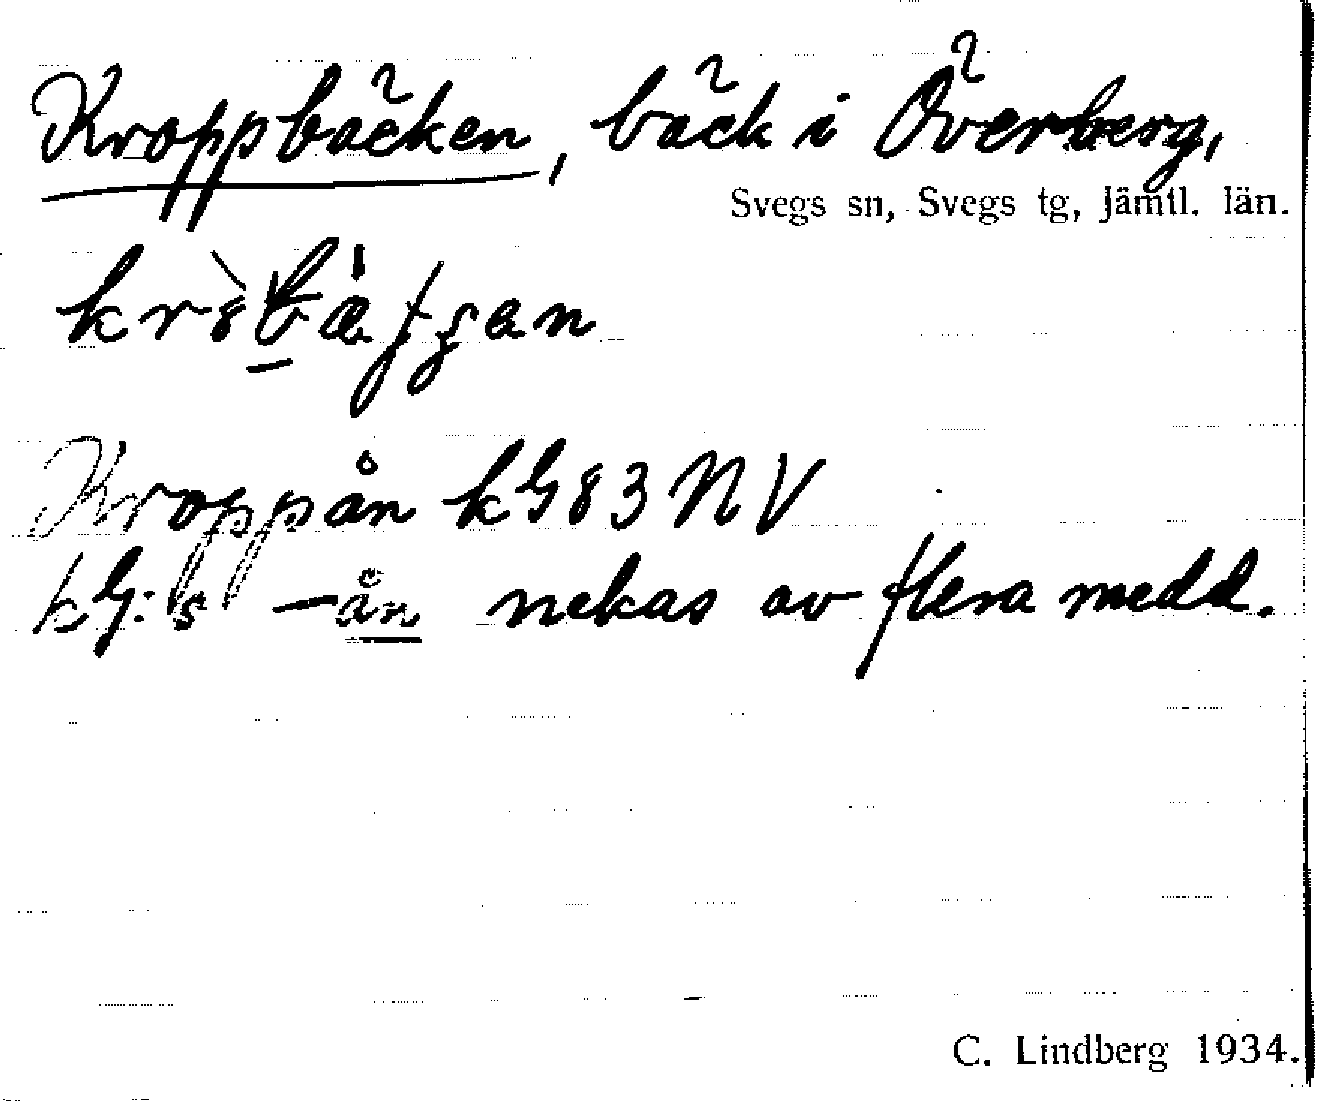 Kroppbäcken, bäck i Överberg,
Svegs sn, Svegs tg, Jämtl. län.
Kroppån kG 83 NV
kG:s -ån nekas av flera medd.
C. Lindberg 1934.